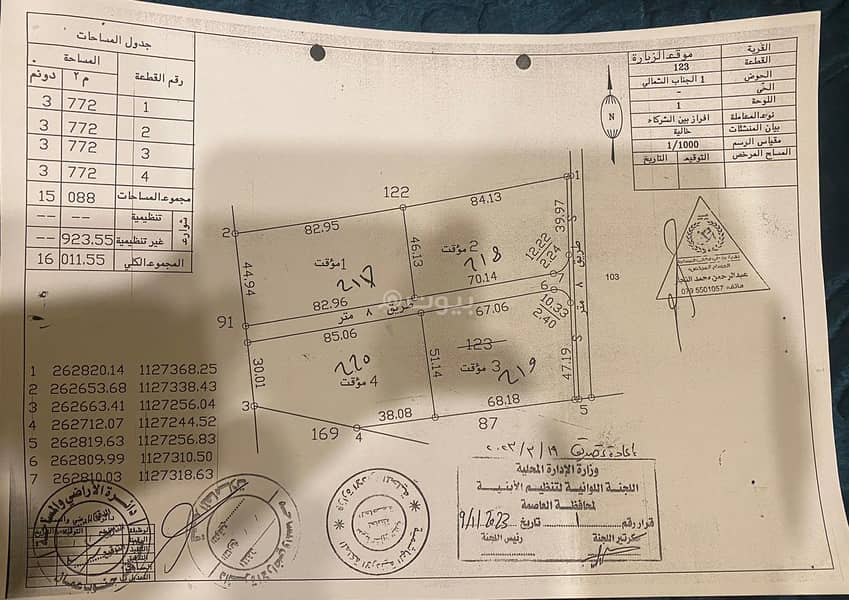 جدول المساحات
رقم القطعة المساحة
م٢ دونم
1 772 3
2 772 3
3 772 3
4 772 3
مجموع المساحات 088 15
شوارع
تنظيمية -- --
غير تنظيمية 923.55 --
المجموع الكلي 011.55 16
القرية موقع الزيارة
القطعة 123
الحوض 1 الجناب الشمالي
الحي -
اللوحة 1
نوع المعاملة افراز بين الشركاء
بيان المنشئات خالية
مقياس الرسم 1/1000
المساح المرخص التوقيع التاريخ
N
122
84.13
1
82.95
2
39.97
S
46.13
2 مؤقت
218
1 مؤقت
217
12.22
2.24
70.14
7
44.94
82.96
طريق ٨ متر
67.06
6
10.33
2.40
طريق ٨ متر
103
91
85.06
30.01
220
4 مؤقت
51.14
123
3 مؤقت
219
47.19
S
3
38.08
68.18
87
5
169
4
عبدالرحمن محمد
هاتف: 079 5501057
بيوت
1 262820.14 1127368.25
2 262653.68 1127338.43
3 262663.41 1127256.04
4 262712.07 1127244.52
5 262819.63 1127256.83
6 262809.99 1127310.50
7 262810.03 1127318.63
إعادة تصديق ٢٠٢٣/٣/١٩
وزارة الإدارة المحلية
اللجنة اللوائية لتنظيم الأبنية
لمحافظة العاصمة
قرار رقم 1 تاريخ 9/1/2023
سكرتير اللجنة رئيس اللجنة
دائرة الاراضي والمساحة